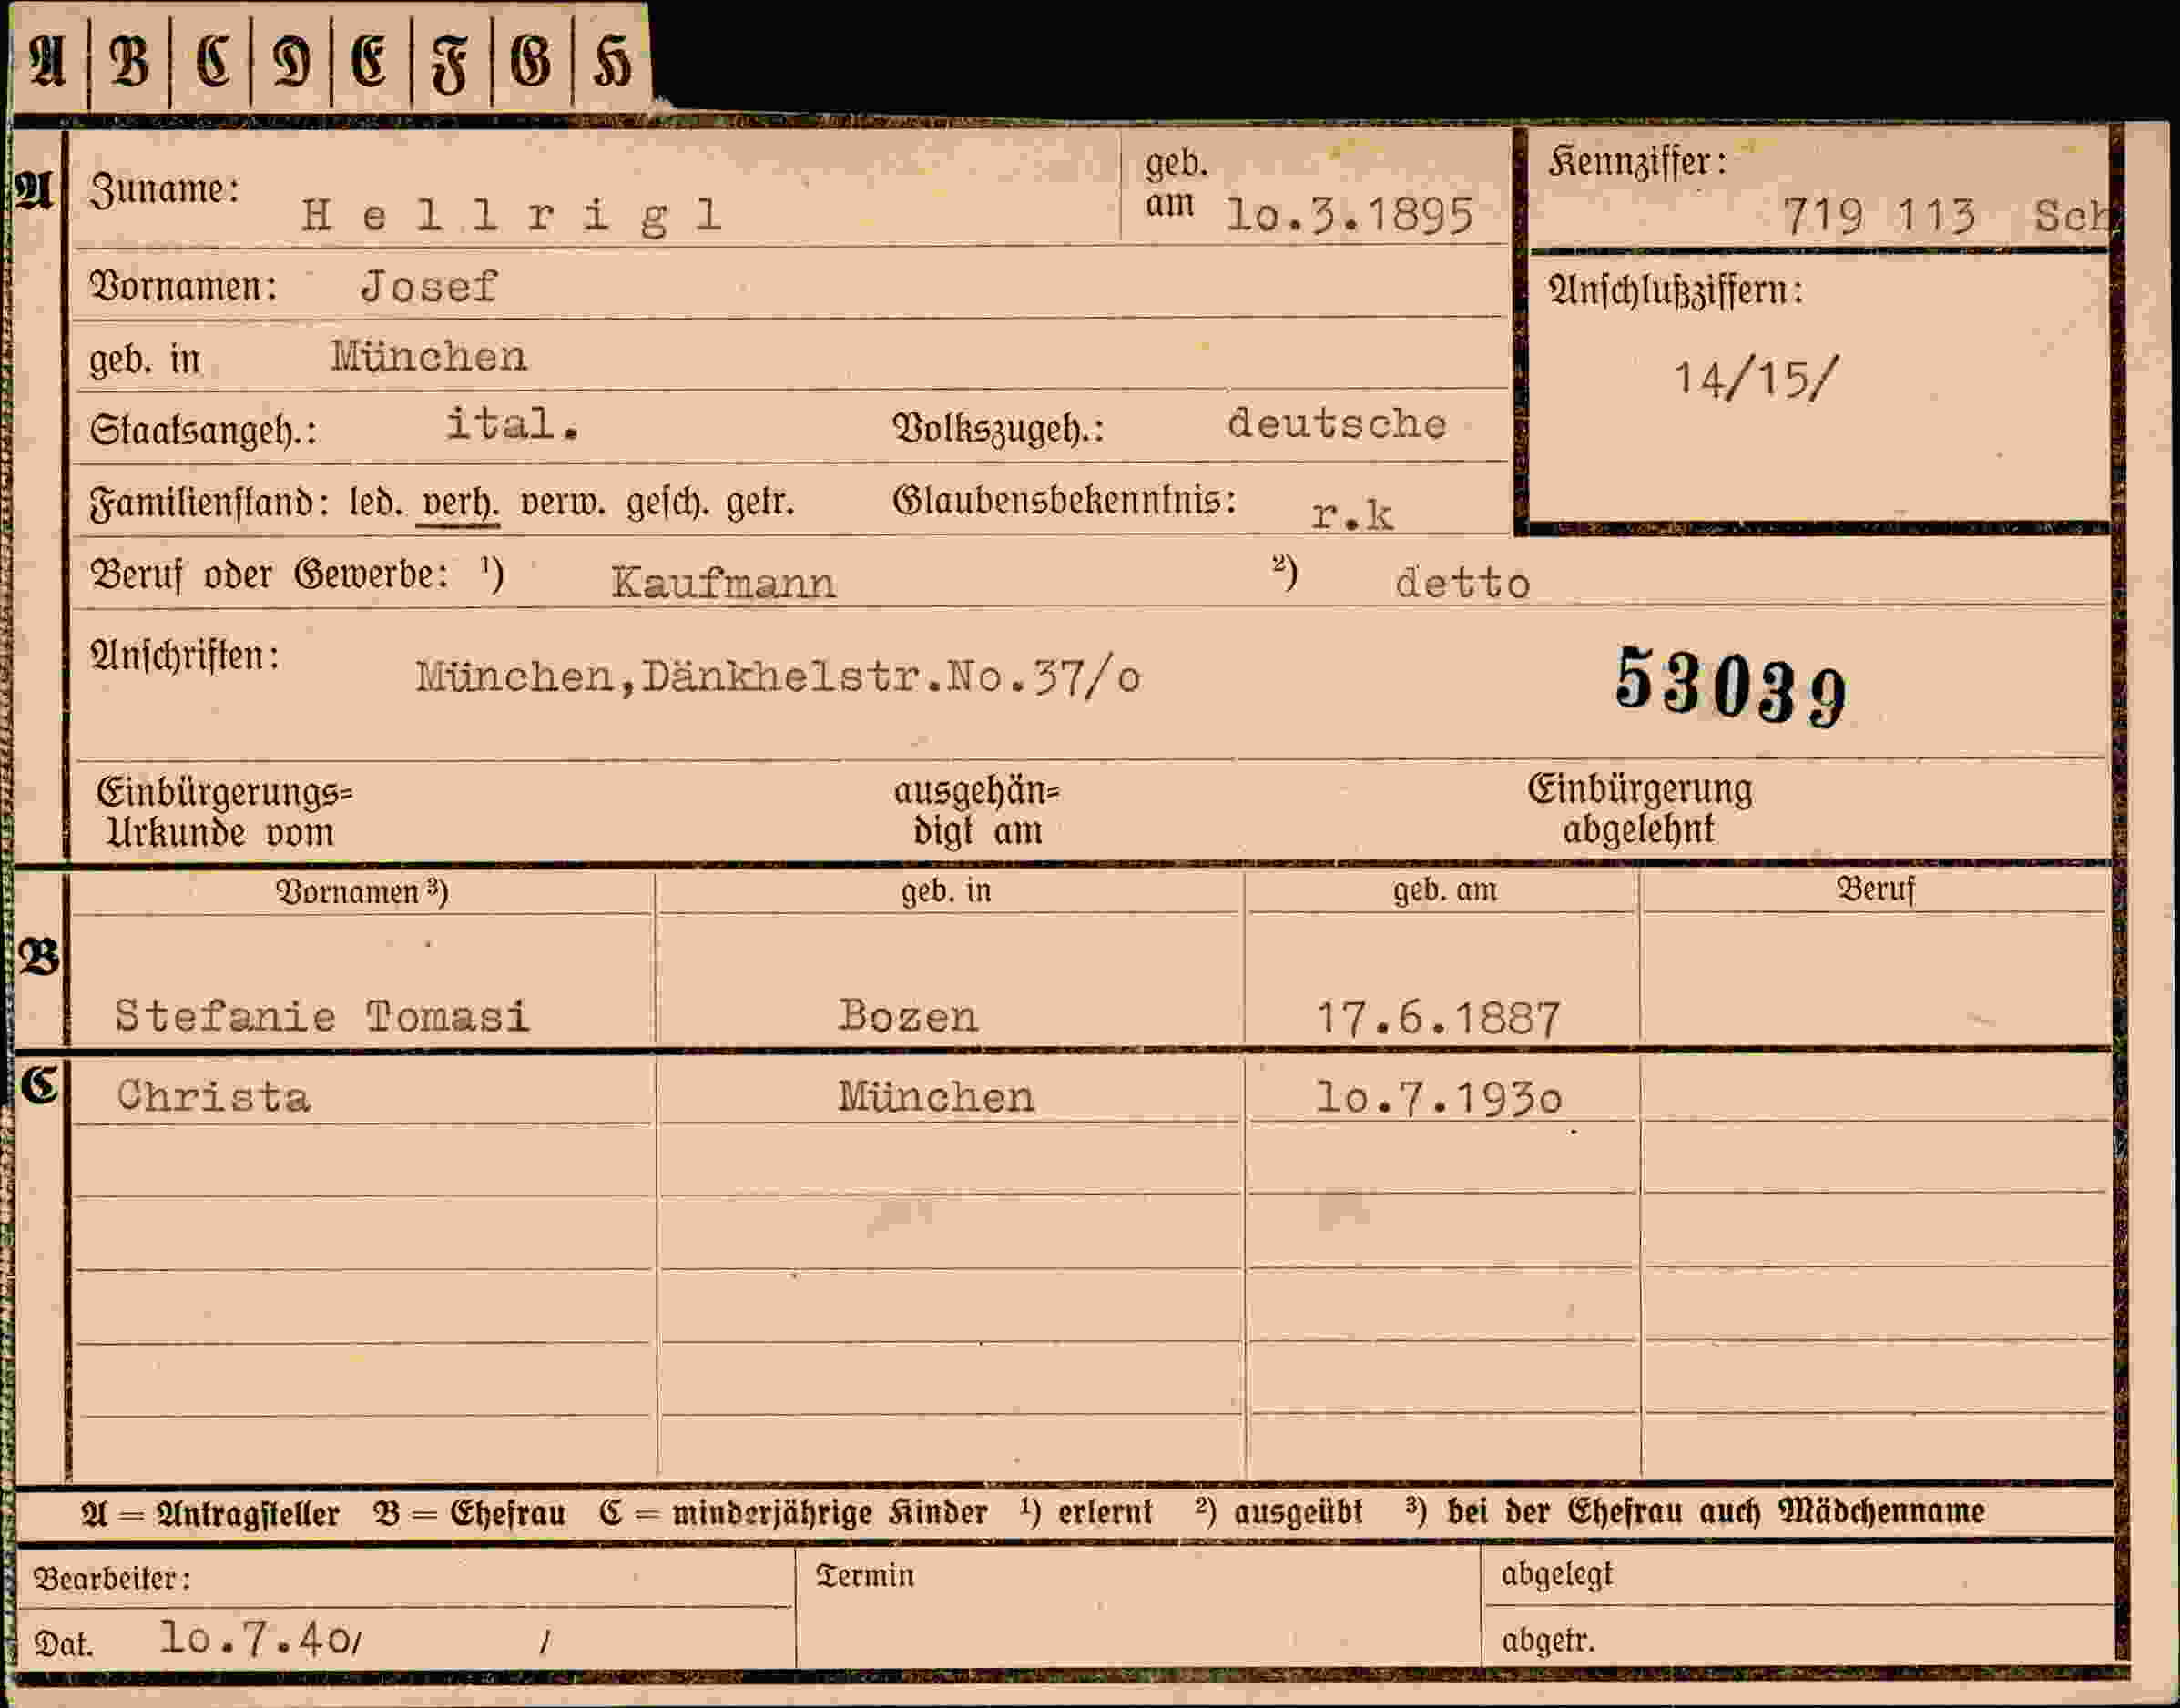 A B C D E F G H
A Zuname: Hellrigl geb. am 1o.3.1895 Kennziffer: 719 113 Sch
Vornamen: Josef Anschlußziffern:
geb. in München 14/15/
Staatsangeh.: ital. Volkszugeh.: deutsche
Familienstand: led. verh. verw. gesch. getr. Glaubensbekenntnis: r.k
Beruf oder Gewerbe: ¹) Kaufmann ²) detto
Anschriften: München,Dänkhelstr.No.37/o 53039
Einbürgerungs= ausgehän= Einbürgerung
Urkunde vom digt am abgelehnt
Vornamen ³) geb. in geb. am Beruf
B
Stefanie Tomasi Bozen 17.6.1887
C Christa München 1o.7.193o
A = Antragsteller B = Ehefrau C = minderjährige Kinder ¹) erlernt ²) ausgeübt ³) bei der Ehefrau auch Mädchenname
Bearbeiter: Termin abgelegt
Dat. 1o.7.4o/ / abgetr.